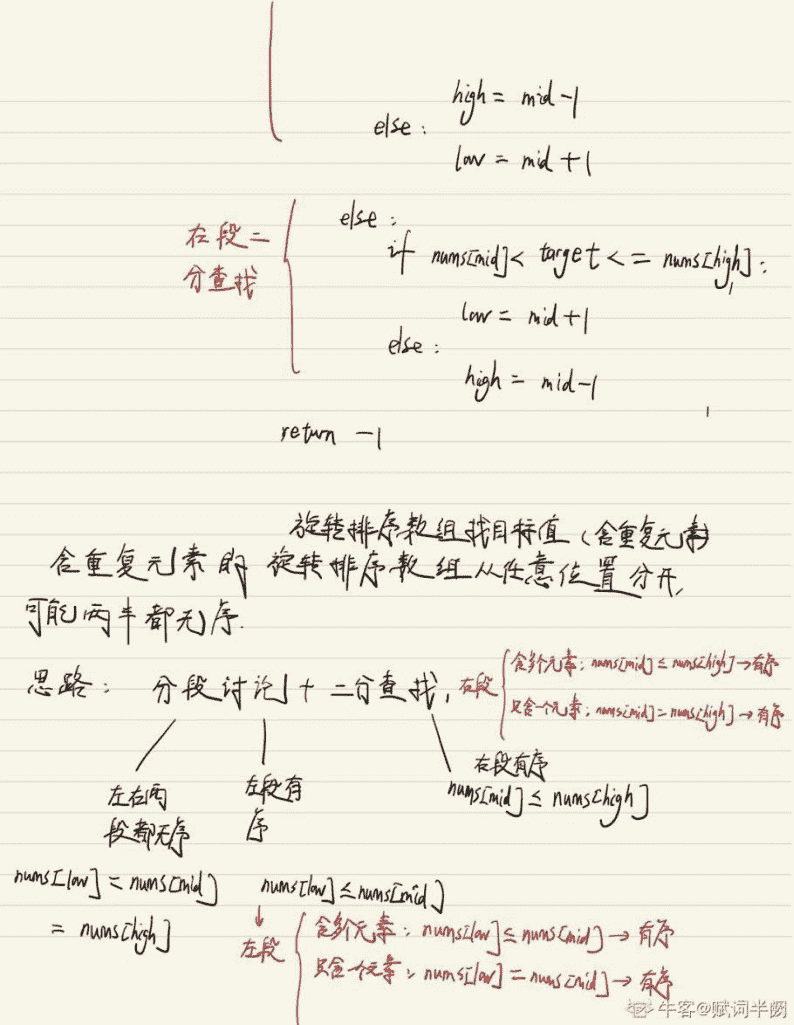 high = mid-1
else:
low = mid+1
else:
右段二
分查找
if nums[mid]< target <= nums[high]:
low = mid+1
else:
high = mid-1
return -1
旋转排序数组找目标值(含重复元素)
含重复元素的旋转排序数组从任意位置分开,
可能两半都无序.
思路: 分段讨论+二分查找,
右段
含多个元素: nums[mid]≤nums[high]→有序
只含一个元素: nums[mid]=nums[high]→有序
左右两
段都无序
左段有
序
右段有序
nums[mid]≤nums[high]
nums[low]=nums[mid]
=nums[high]
nums[low]≤nums[mid]
左段
含多个元素: nums[low]≤nums[mid]→有序
只含一个元素: nums[low]=nums[mid]→有序
牛客@赋词半阙